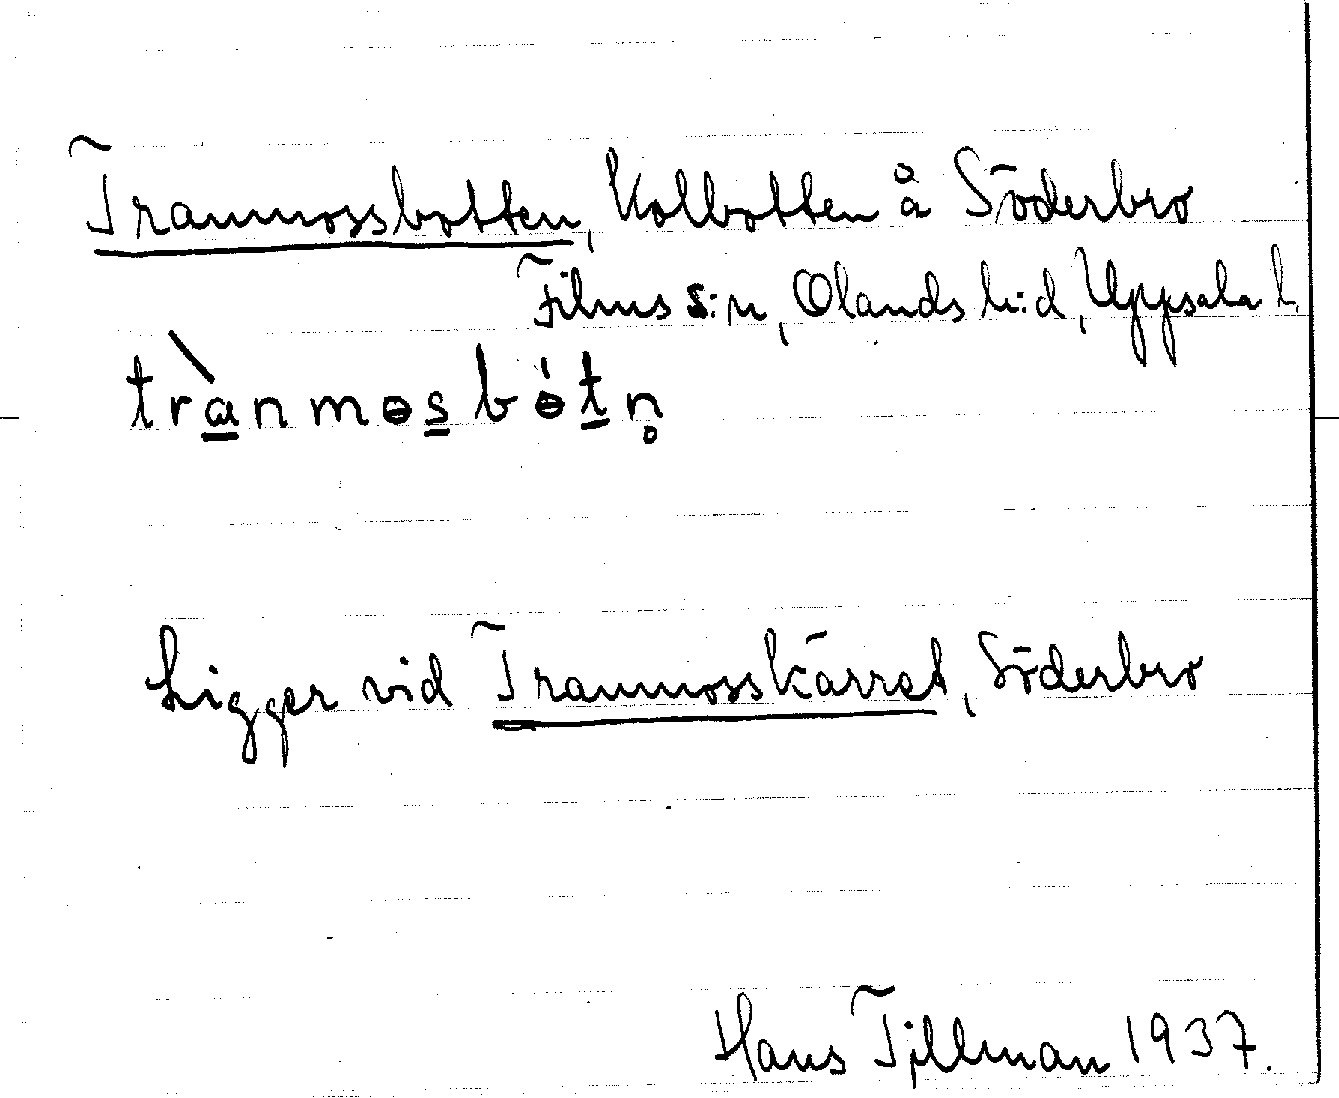 Tranmossbotten, Kolbotten å Söderbro
Films s:n, Olands h:d, Uppsala l.
trànmɵsbɵ́tn̥
Ligger vid Tranmosskärret, Söderbro
Hans Tjillman 1937.